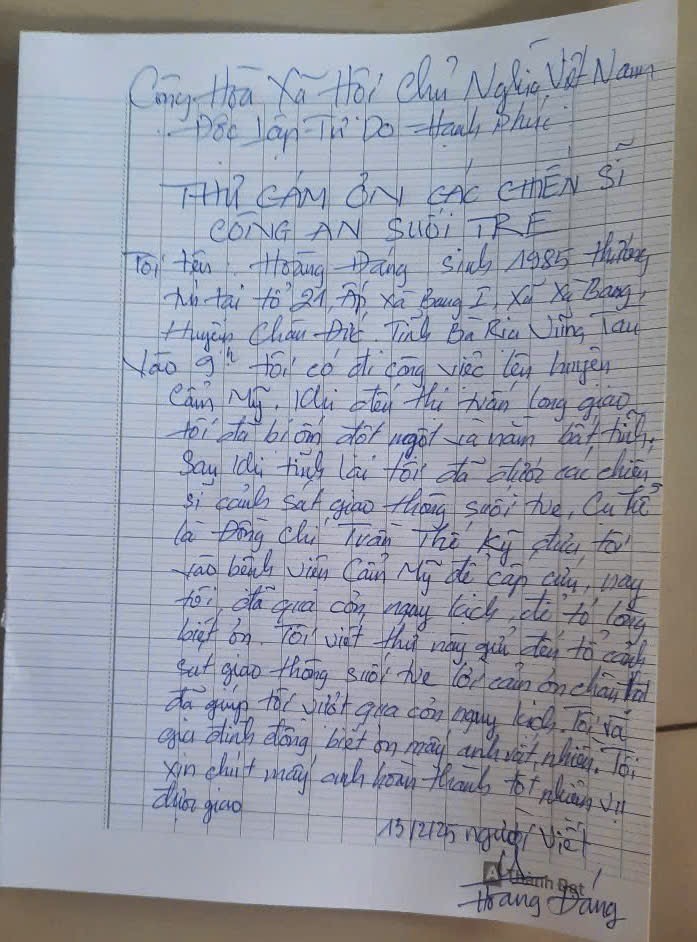 Cộng Hòa Xã Hội Chủ Nghĩa Việt Nam
Độc Lập - Tự Do - Hạnh Phúc
THƯ CẢM ƠN CÁC CHIẾN SĨ
CÔNG AN SUỐI TRE
Tôi tên: Hoàng Đăng sinh 1985 thường
trú tại tổ 21, Ấp Xà Bang I, Xã Xà Bang,
Huyện Châu Đức. Tỉnh Bà Rịa Vũng Tàu
Vào 9h tôi có đi công việc lên huyện
Cẩm Mỹ. Khi đến thị trấn long giao
tôi đã bị ốm đột ngột và nằm bất tỉnh,
Sau khi tỉnh lại tôi đã được các chiến
sĩ cảnh sát giao thông suối tre, Cụ thể
là Đồng chí Trần Thế Kỹ đưa tôi
vào bệnh viện Cẩm Mỹ để cấp cứu, nay
tôi đã qua cơn nguy kịch, để tỏ lòng
biết ơn. Tôi viết thư này gửi đến tổ cảnh
sát giao thông suối tre lời cảm ơn chân thật
đã giúp tôi vượt qua cơn nguy kịch. Tôi và
gia đình đồng biết ơn mấy anh rất nhiều. Tôi
xin chút mấy anh hoàn thành tốt nhiệm vụ
được giao
13/2/25 người viết
Thành Đạt
Hoàng Đăng